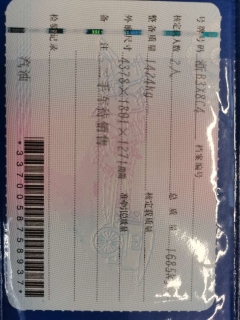 号牌号码 浙B3X8C4 档案编号
核定载人数 2人 总质量 1685kg
整备质量 1424kg 核定载质量
外廓尺寸 4378×1801×1271mm 准牵引总质量
备注 二手车待销售
检验记录
汽油
*3370058758937*